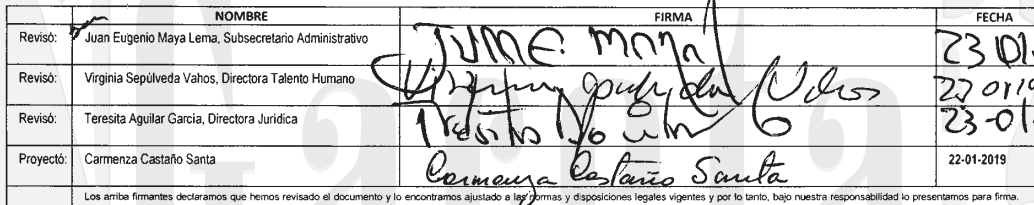 NOMBRE FIRMA FECHA
Revisó: Juan Eugenio Maya Lema, Subsecretario Administrativo
Revisó: Virginia Sepúlveda Vahos, Directora Talento Humano
Revisó: Teresita Aguilar García, Directora Jurídica
Proyectó: Carmenza Castaño Santa Carmenza Castaño Santa 22-01-2019
Los arriba firmantes declaramos que hemos revisado el documento y lo encontramos ajustado a las normas y disposiciones legales vigentes y por lo tanto, bajo nuestra responsabilidad lo presentamos para firma.